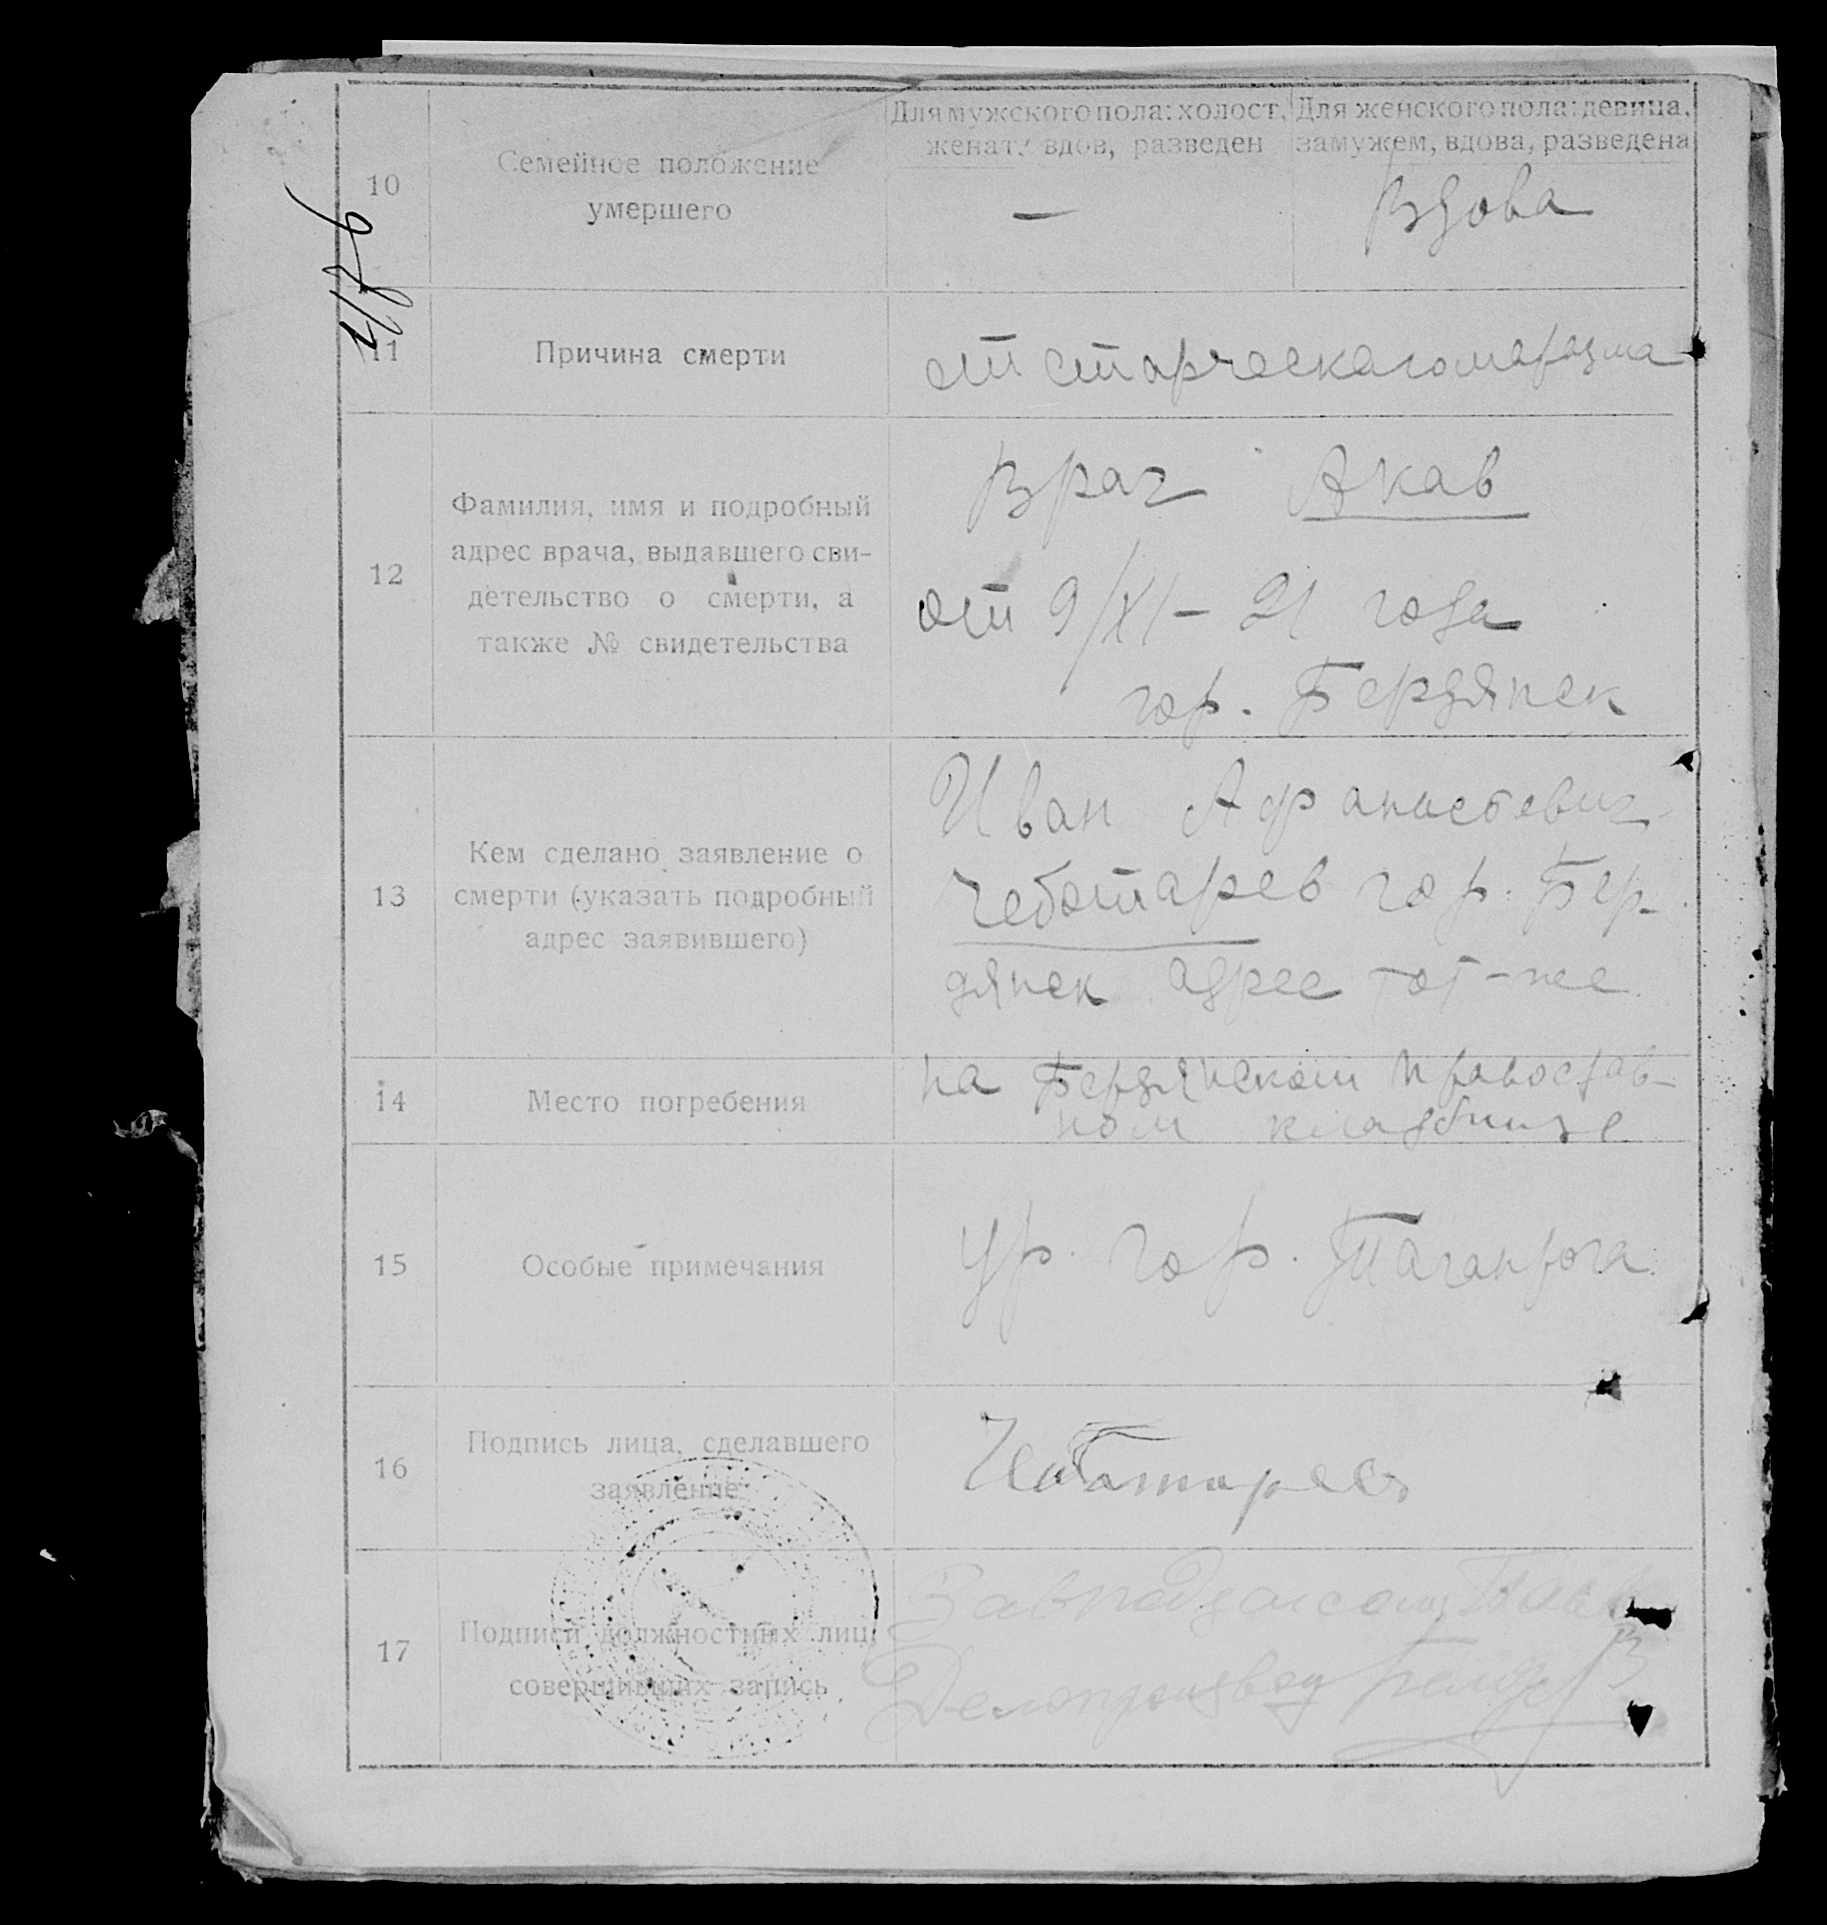 10
Семейное положение
умершего
Для мужского пола: холост,
женат, вдов, разведен
—
Для женского пола: девица,
замужем, вдова, разведена
Вдова
11
Причина смерти
от старческагомаразма
12
Фамилия, имя и подробный
адрес врача, выдавшего сви-
детельство о смерти, а
также № свидетельства
Врач Акав
от 9/XI – 21 года
гор. Бердянск
13
Кем сделано заявление о
смерти (указать подробный
адрес заявившего)
Иван Афанасьевич
Чеботарев гор. Бер-
дянск адрес тот-же
14
Место погребения
на Бердянском Православ-
ном кладбище
15
Особые примечания
Ур. гор. Таганрога
16
Подпись лица, сделавшего
заявление
Чеботарев
17
Подписи должностных лиц,
совершивших запись
Делопроизвод